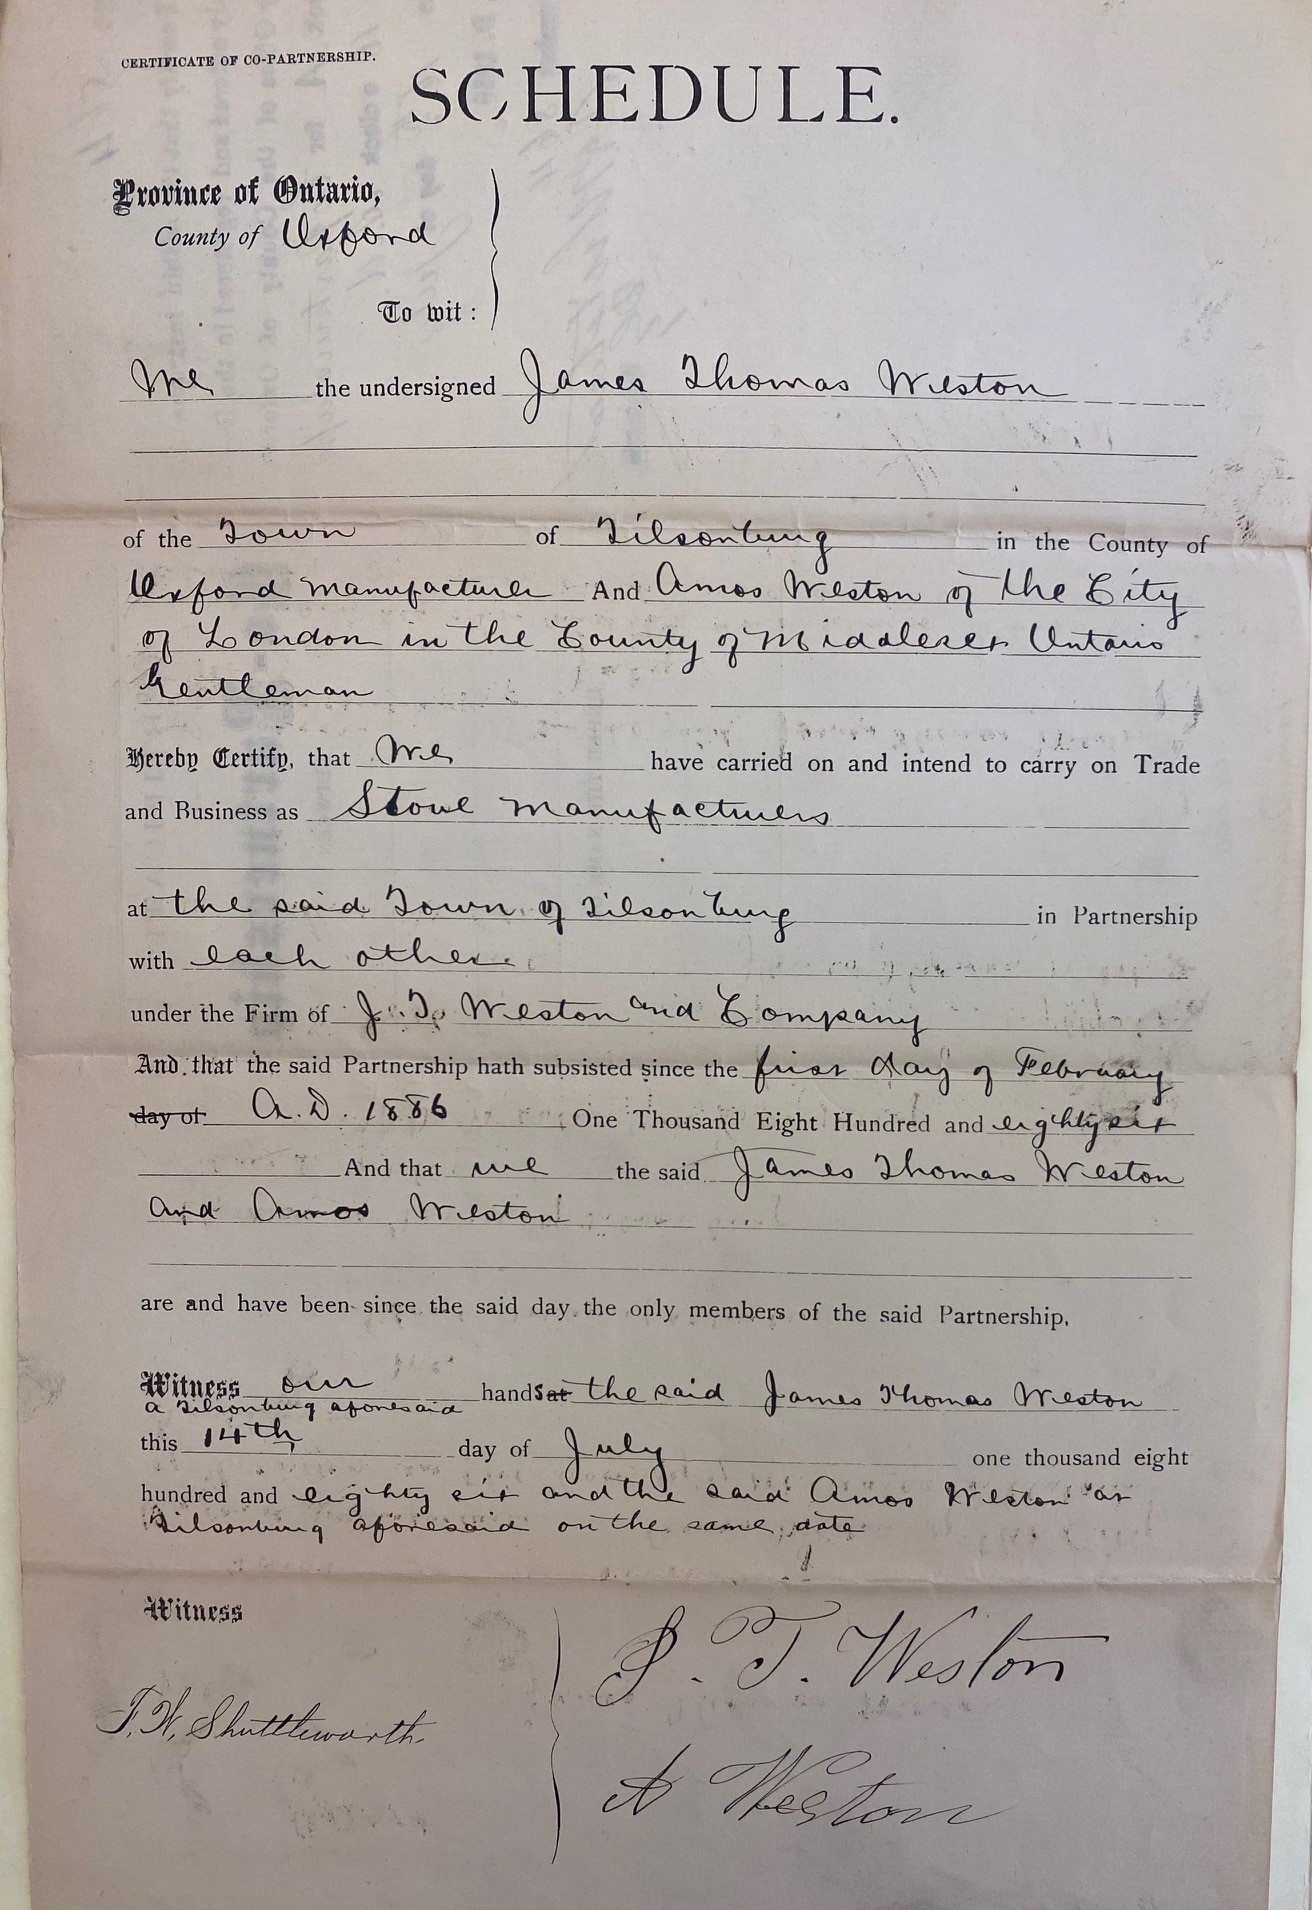 CERTIFICATE OF CO-PARTNERSHIP.
SCHEDULE.
Province of Ontario,
County of Oxford
To wit:
We the undersigned James Thomas Weston
of the Town of Tilsonburg in the County of
Oxford Manufacturer And Amos Weston of the City
of London in the County of Middlesex Ontario
Gentleman
Hereby Certify, that We have carried on and intend to carry on Trade
and Business as Stove Manufacturers
at the said Town of Tilsonburg in Partnership
with each other
under the Firm of J. T. Weston and Company
And that the said Partnership hath subsisted since the first day of February
day of A.D. 1886 One Thousand Eight Hundred and eighty six
And that we the said James Thomas Weston
and Amos Weston
are and have been since the said day the only members of the said Partnership.
Witness our hands at the said James Thomas Weston
a Tilsonburg aforesaid
this 14th day of July one thousand eight
hundred and eighty six and the said Amos Weston at
Tilsonburg aforesaid on the same date
Witness
J. T. Weston
T. W. Shuttleworth.
A Weston